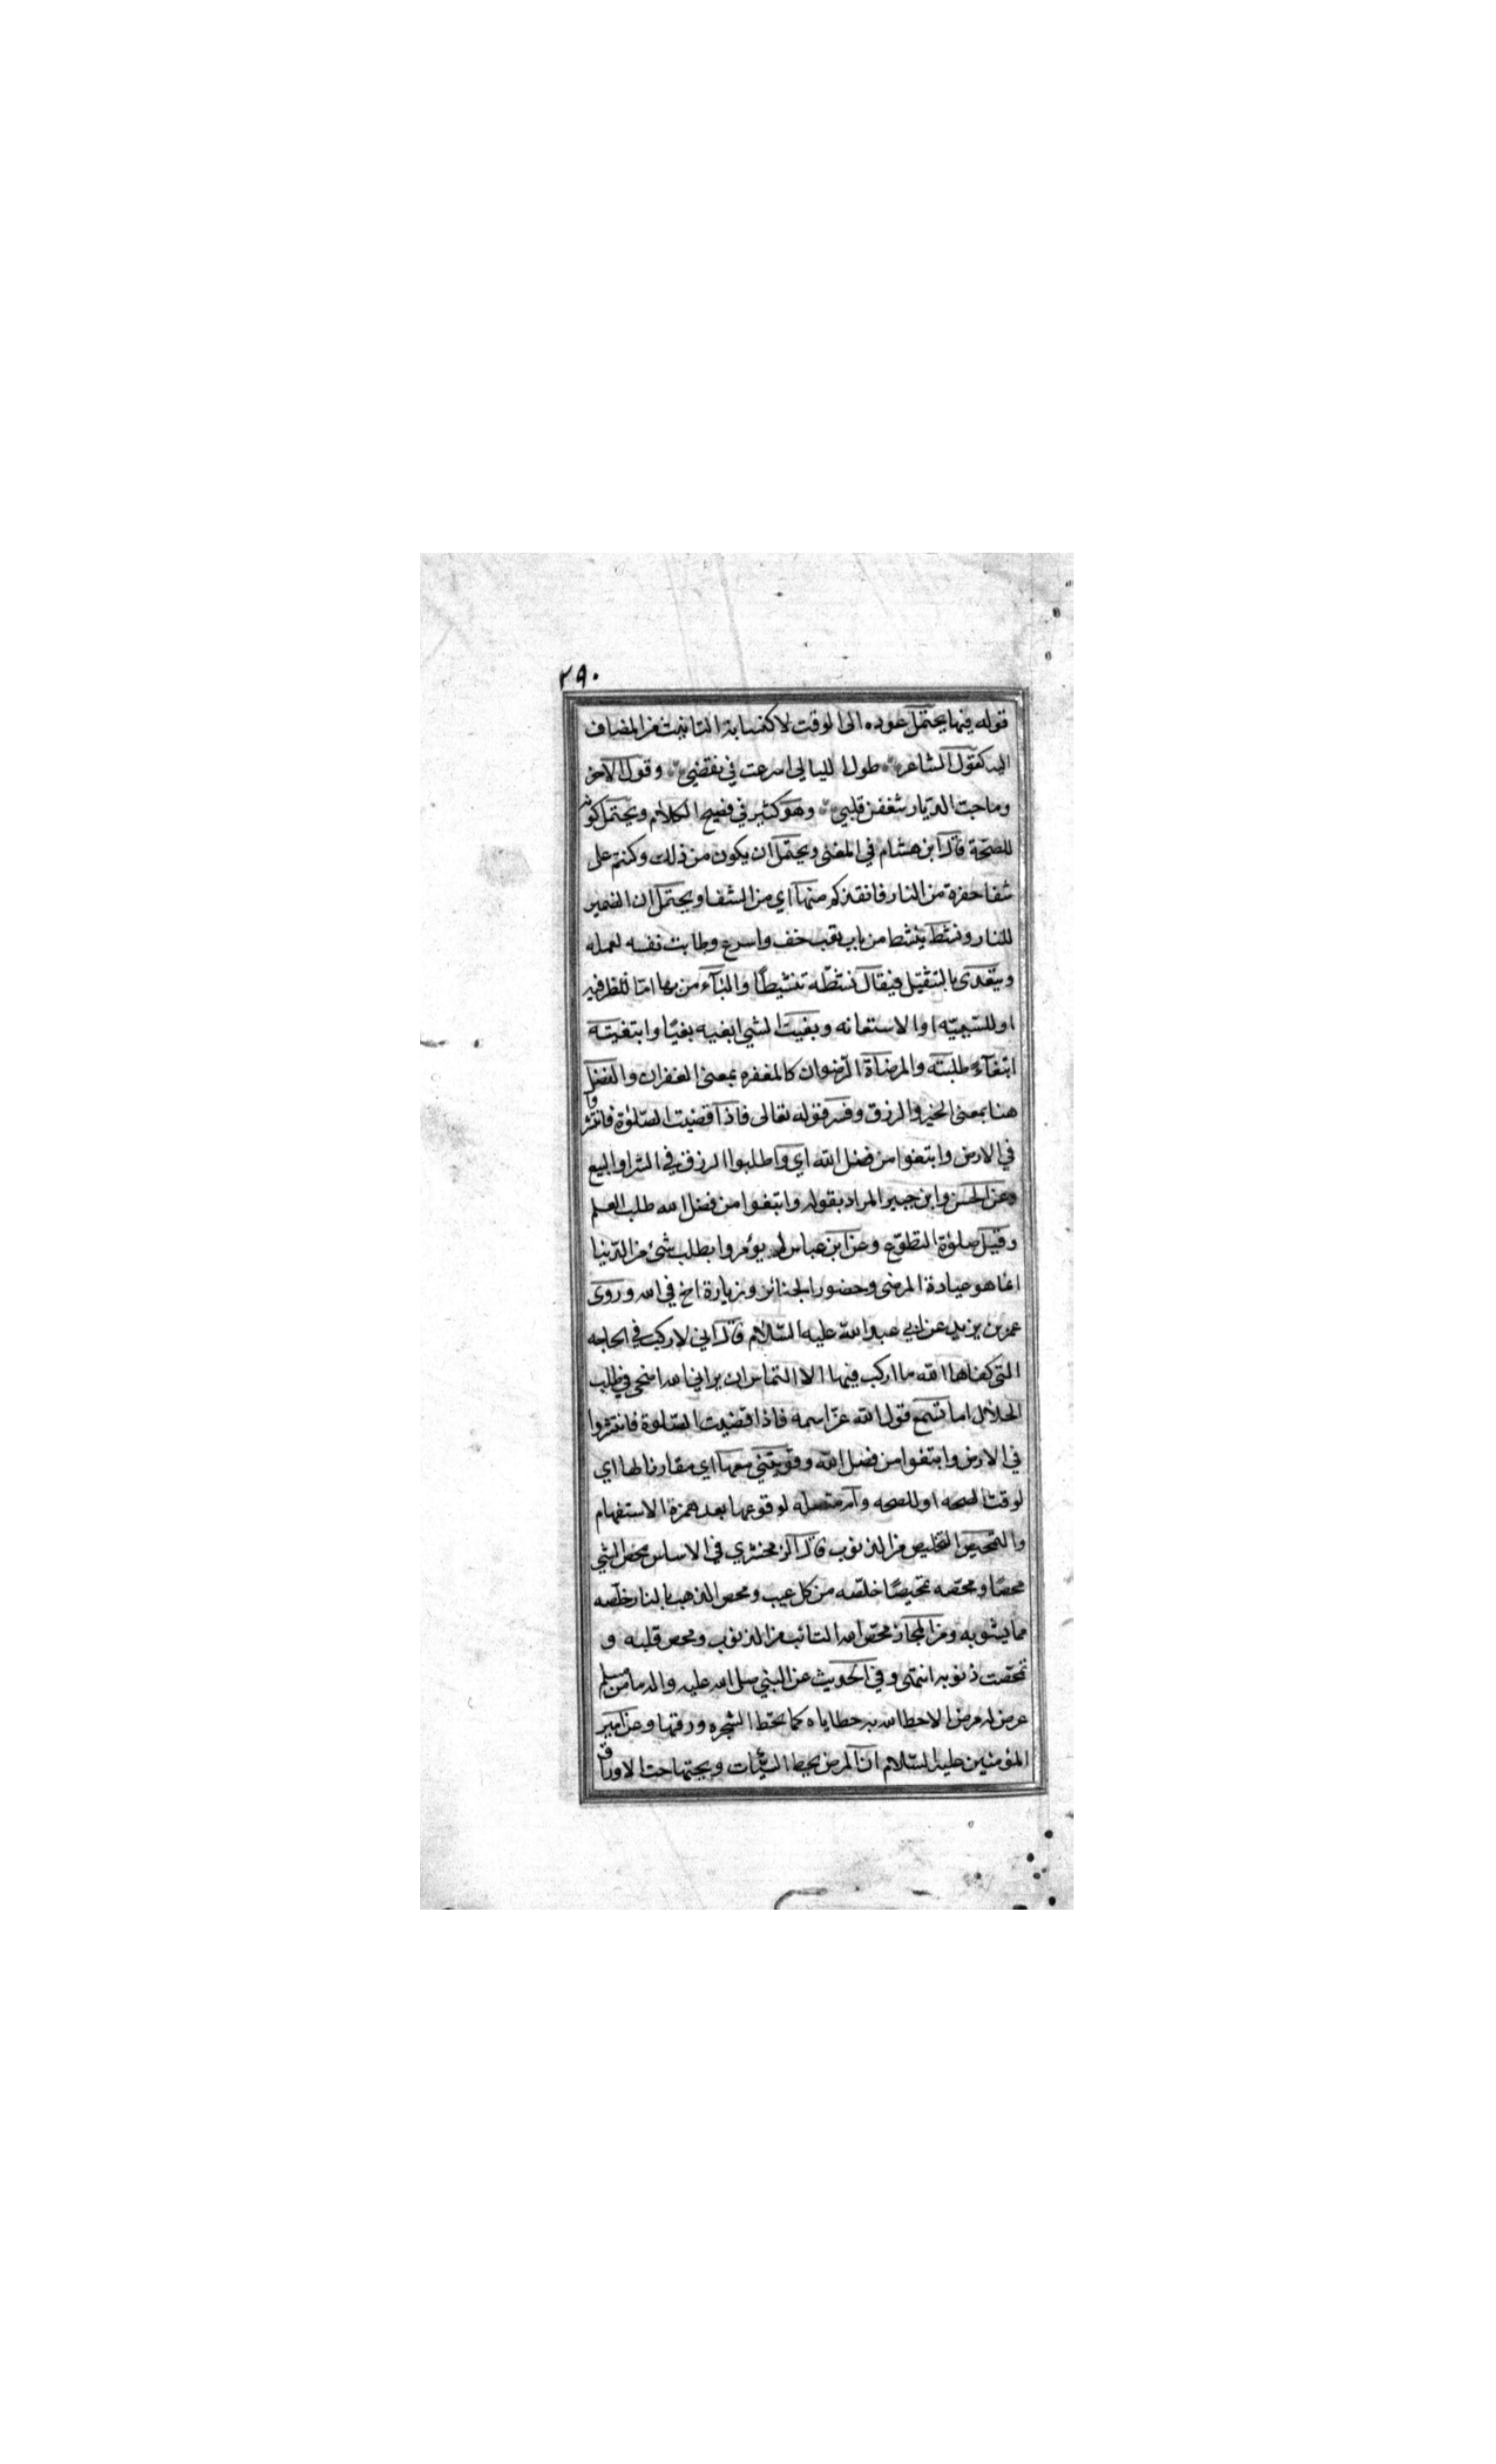 ٢٩٠
قوله فيها يحتمل عوده الى الوقت لاكتسابة التانيث من المضاف
اليه كقول الشاعر طول الليالي اسرعت في نقضي وقول الاخر
وما حب الديار شغفن قلبي وهو كثير في فصيح الكلام ويحتمل كونه
للصحّة قال ابن هشام في المغنى ويحتمل ان يكون من ذلك وكنتم على
شفا حفرة من النار فانقذكم منها اي من الشفا ويحتمل ان الضمير
للنار ونشط ينشط من باب تعب خف واسرع وطابت نفسه لعمله
ويتعدى بالتثقيل فيقال نشطّه تنشيطًا والبآء من بها امّا للظرفيه
او للسّببيّه او الاستعانه وبغيت الشي ابغيه بغيًا وابتغيته
ابتغآء طلبته والمرضاة الرّضوان كالمغفره بمعنى الغفران والفضل
هنا بمعنى الخير والرزق وفسر قوله تعالى فاذا قضيت الصّلوٰة فانتشروا
في الارض وابتغوا من فضل الله اي واطلبوا الرزق في الشرا والبيع
وعن الحسن وابن جبير المراد بقوله وابتغوا من فضل الله طلب العلم
وقيل صلوٰة التطوّع وعن ابن عباس لم يؤمروا بطلب شئ من الدّنيا
انما هو عيادة المرضى وحضور الجنائز وزيارة اخ في الله وروى
عمر بن يزيد عن ابي عبد الله عليه السّلام قال اني لاركب في الحاجه
التي كفاها الله ما اركب فيها الا التماس ان يراني الله اضحى في طلب
الحلال اما تسمع قول الله عزّ اسمه فاذا قضيت الصّلوة فانتشروا
في الارض وابتغوا من فضل الله وقوّيتني معها اي مقارنا لها اي
لوقت الصحه او للصحه وام متصله لوقوعها بعد همزة الاستفهام
والتمحيص التخليص من الذنوب قال الزمخشري في الاساس محص الشي
محصًا ومحّصه تمحيصًا خلّصه من كل عيب ومحص الذهب بالنار خلّصه
مما يشوبه ومن المجاز محّص الله التائب من الذنوب ومحص قلبه و
تمحّصت ذنوبه انتهى وفي الحديث عن النبي صلى الله عليه واله ما من مسلم
عرض له مرض الا حط الله به خطاياه كما تحط الشجره ورقها وعن امير
المؤمنين عليه السّلام ان المرض يحط السيّئات ويحتها حت الاوراق